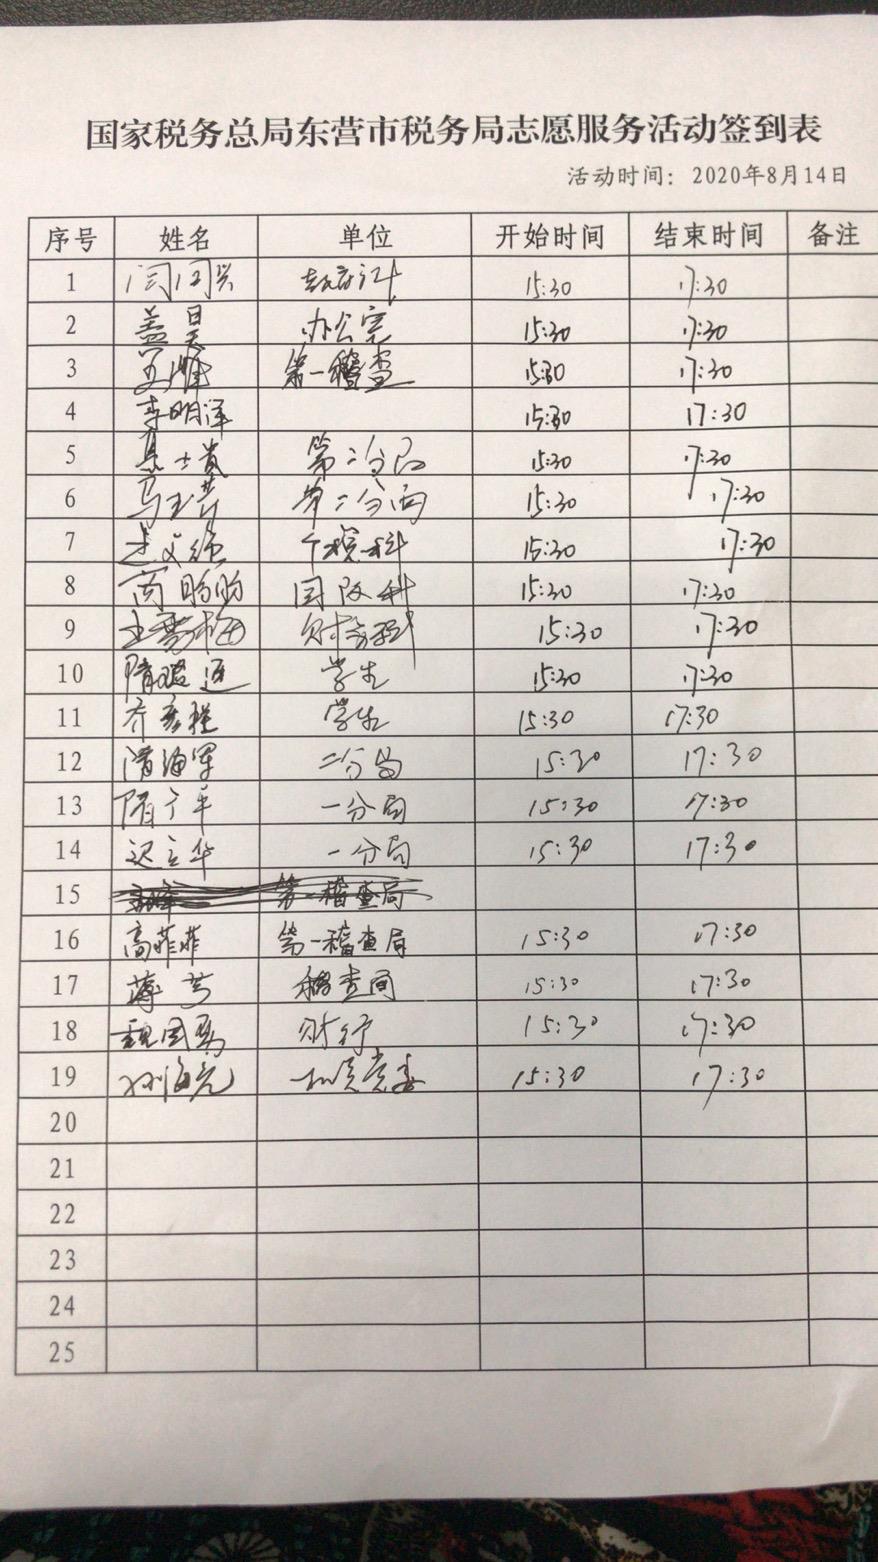 国家税务总局东营市税务局志愿服务活动签到表
活动时间：2020年8月14日
序号 姓名 单位 开始时间 结束时间 备注
1 15:30 17:30
2 盖昊 办公室 15:30 17:30
3 第一稽查 15:30 17:30
4 李明泽 15:30 17:30
5 第二分局 15:30 17:30
6 第二分局 15:30 17:30
7 个税科 15:30 17:30
8 商盼盼 15:30 17:30
9 王雪梅 财务科 15:30 17:30
10 学生 15:30 17:30
11 学生 15:30 17:30
12 隋海军 二分局 15:30 17:30
13 隋广平 一分局 15:30 17:30
14 迟立华 一分局 15:30 17:30
15 第一稽查局
16 高菲菲 第一稽查局 15:30 17:30
17 薄芳 稽查局 15:30 17:30
18 魏国勇 财行 15:30 17:30
19 孙海亮 机关党委 15:30 17:30
20
21
22
23
24
25